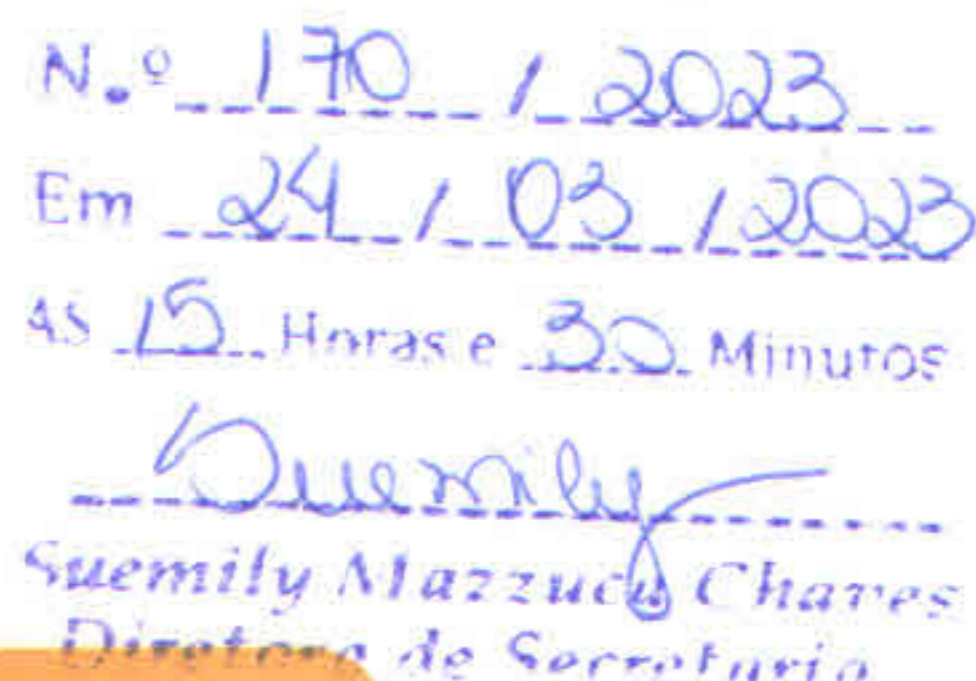 N.º 170 / 2023
Em 24 / 03 / 2023
às 15 Horas e 30 Minutos
Suemily
Suemily Mazzucu Chaves
Diretora de Secretaria